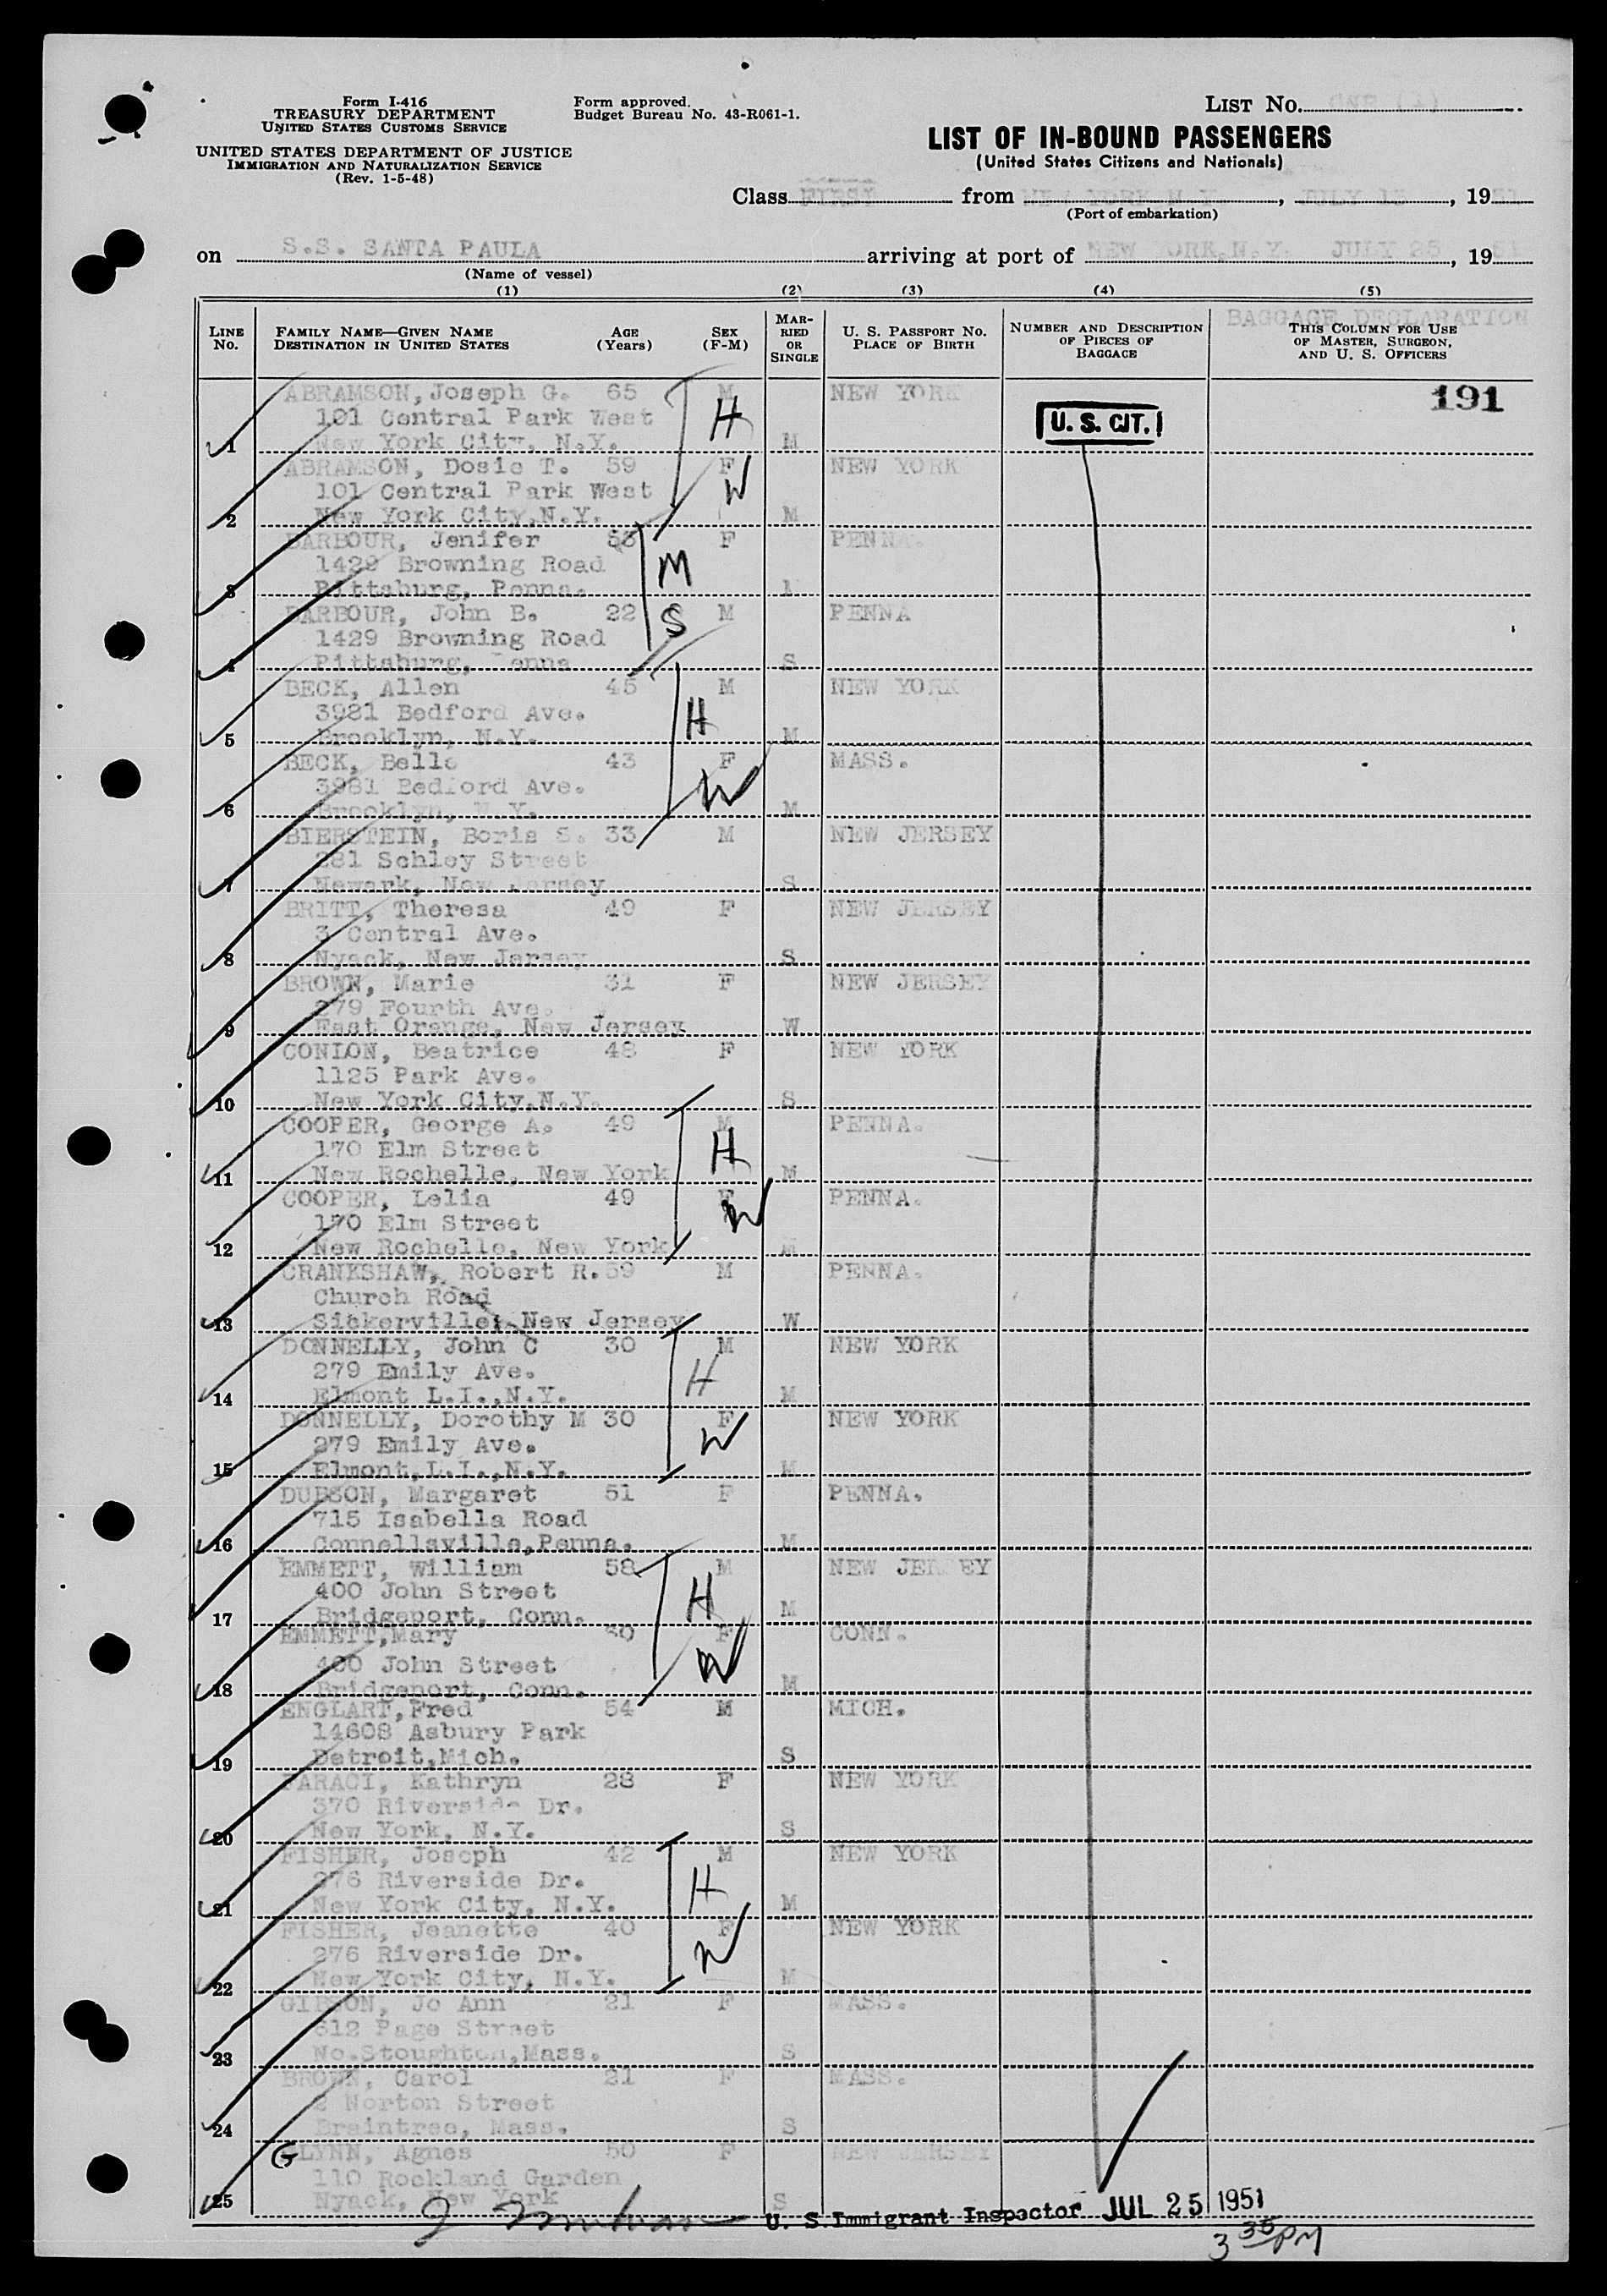 Form I-416
TREASURY DEPARTMENT
UNITED STATES CUSTOMS SERVICE
UNITED STATES DEPARTMENT OF JUSTICE
IMMIGRATION AND NATURALIZATION SERVICE
(Rev. 1-5-48)
Form approved.
Budget Bureau No. 43-R061-1.
LIST No. ONE (1)
LIST OF IN-BOUND PASSENGERS
(United States Citizens and Nationals)
Class FIRST from NEW YORK N.Y., JULY 13, 1951
(Port of embarkation)
on S.S. SANTA PAULA arriving at port of NEW YORK, N.Y. JULY 25, 1951
(Name of vessel)
(1) (2) (3) (4) (5)
BAGGAGE DECLARATION
LINE No. FAMILY NAME—GIVEN NAME DESTINATION IN UNITED STATES AGE (Years) SEX (F-M) MARRIED OR SINGLE U. S. PASSPORT NO. PLACE OF BIRTH NUMBER AND DESCRIPTION OF PIECES OF BAGGAGE THIS COLUMN FOR USE OF MASTER, SURGEON, AND U. S. OFFICERS
ABRAMSON, Joseph G. 65 M NEW YORK 191
101 Central Park West H U. S. CIT.
1 New York City, N.Y. M
ABRAMSON, Dosie T. 59 F NEW YORK
101 Central Park West W
2 New York City, N.Y. M
BARBOUR, Jenifer 53 F PENNA.
1429 Browning Road M
3 Pittsburg, Penna.
BARBOUR, John B. 22 S M PENNA
1429 Browning Road
4 Pittsburg, Penna S
BECK, Allen 45 M NEW YORK
3981 Bedford Ave. H
5 Brooklyn, N.Y. M
BECK, Belle 43 F MASS.
3981 Bedford Ave. W
6 Brooklyn, N.Y. M
BIERSTEIN, Boris S. 33 M NEW JERSEY
281 Schley Street
7 Newark, New Jersey S
BRITT, Theresa 49 F NEW JERSEY
3 Central Ave.
8 Nyack, New Jersey S
BROWN, Marie 31 F NEW JERSEY
279 Fourth Ave.
9 East Orange, New Jersey W
CONLON, Beatrice 48 F NEW YORK
1125 Park Ave.
10 New York City, N.Y. S
COOPER, George A. 49 M PENNA.
170 Elm Street H
11 New Rochelle, New York M
COOPER, Lelia 49 F PENNA.
170 Elm Street W
12 New Rochelle, New York M
CRANKSHAW, Robert R. 59 M PENNA.
Church Road
13 Sickerville, New Jersey W
DONNELLY, John C 30 M NEW YORK
279 Emily Ave. H
14 Elmont L.I., N.Y. M
DONNELLY, Dorothy M 30 F NEW YORK
279 Emily Ave. W
15 Elmont, L.I., N.Y. M
DUBSON, Margaret 51 F PENNA.
715 Isabella Road
16 Connellsville, Penna. M
EMMETT, William 58 M NEW JERSEY
400 John Street H
17 Bridgeport, Conn. M
EMMETT, Mary F CONN.
400 John Street W
18 Bridgeport, Conn. M
ENGLART, Fred 54 M MICH.
14608 Asbury Park
19 Detroit, Mich. S
FARACI, Kathryn 28 F NEW YORK
370 Riverside Dr.
20 New York, N.Y. S
FISHER, Joseph 42 M NEW YORK
276 Riverside Dr. H
21 New York City, N.Y. M
FISHER, Jeanette 40 F NEW YORK
276 Riverside Dr. W
22 New York City, N.Y. M
GIBSON, Jo Ann 21 F MASS.
612 Page Street
23 No. Stoughton, Mass. S
BROWN, Carol 21 F MASS.
2 Norton Street
24 Braintree, Mass. S
GLYNN, Agnes 50 F NEW JERSEY
110 Rockland Garden
25 Nyack, New York S
U. S. Immigrant Inspector JUL 25 1951
3 35 PM